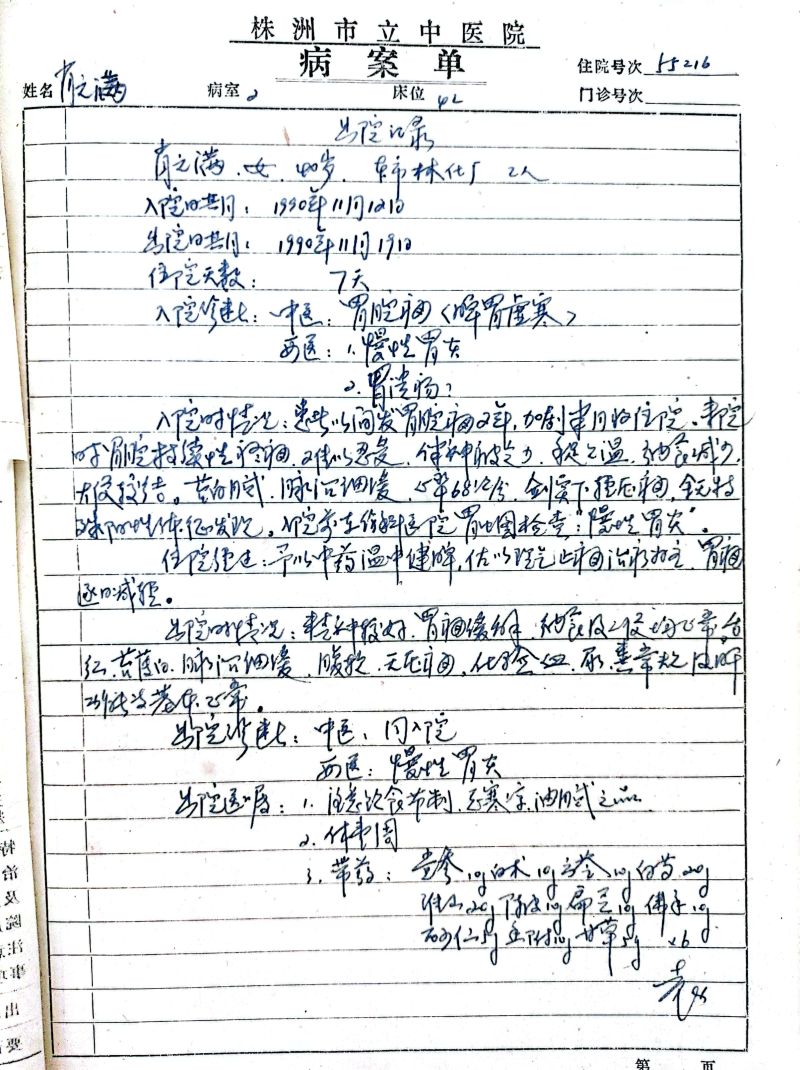 株洲市立中医院
病案单
住院号次 55216
姓名 肖元满 病室 2 床位 42 门诊号次
出院记录
肖元满、女、40岁、株林化厂 工人
入院日期: 1990年11月12日
出院日期: 1990年11月19日
住院天数: 7天
入院诊断: 中医: 胃脘痛(脾胃虚寒)
西医: 1. 慢性胃炎
2. 胃溃疡?
入院时情况: 患者以间发胃脘痛2年, 加剧半月而住院。来院
时胃脘持续性疼痛, 难以忍受, 伴神疲乏力, 纳食减少,
大便较结。苔白腻, 脉沉细缓, 心率68次/分, 剑突下轻压痛, 余无特
殊阳性体征发现。入院前在 医院胃 检查: "慢性胃炎"。
住院经过: 予以中药温中健脾, 佐以理气止痛治疗为主, 胃痛
逐日减轻。
出院时情况: 精神较好, 胃痛缓解, 纳食及二便均正常, 舌
红, 苔薄白, 脉沉细缓, 腹软, 无压痛, 化验血、尿、粪常规及肝
功能均基本正常。
出院诊断: 中医: 同入院
西医: 慢性胃炎
出院医嘱: 1. 注意饮食节制, 忌寒凉、油腻之品
2. 休壹周
3. 带药: 党参10g 白术10g 云苓10g 白芍20g
淮山20g 陈皮10g 扁豆10g 佛手10g
砂仁5g 香附10g 甘草5g x6
第 页
特
治
及
院
注
事
出
要